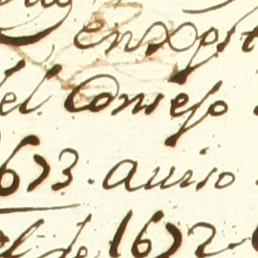 enxpt
el Consejo
1673. auiso
el de 1672.